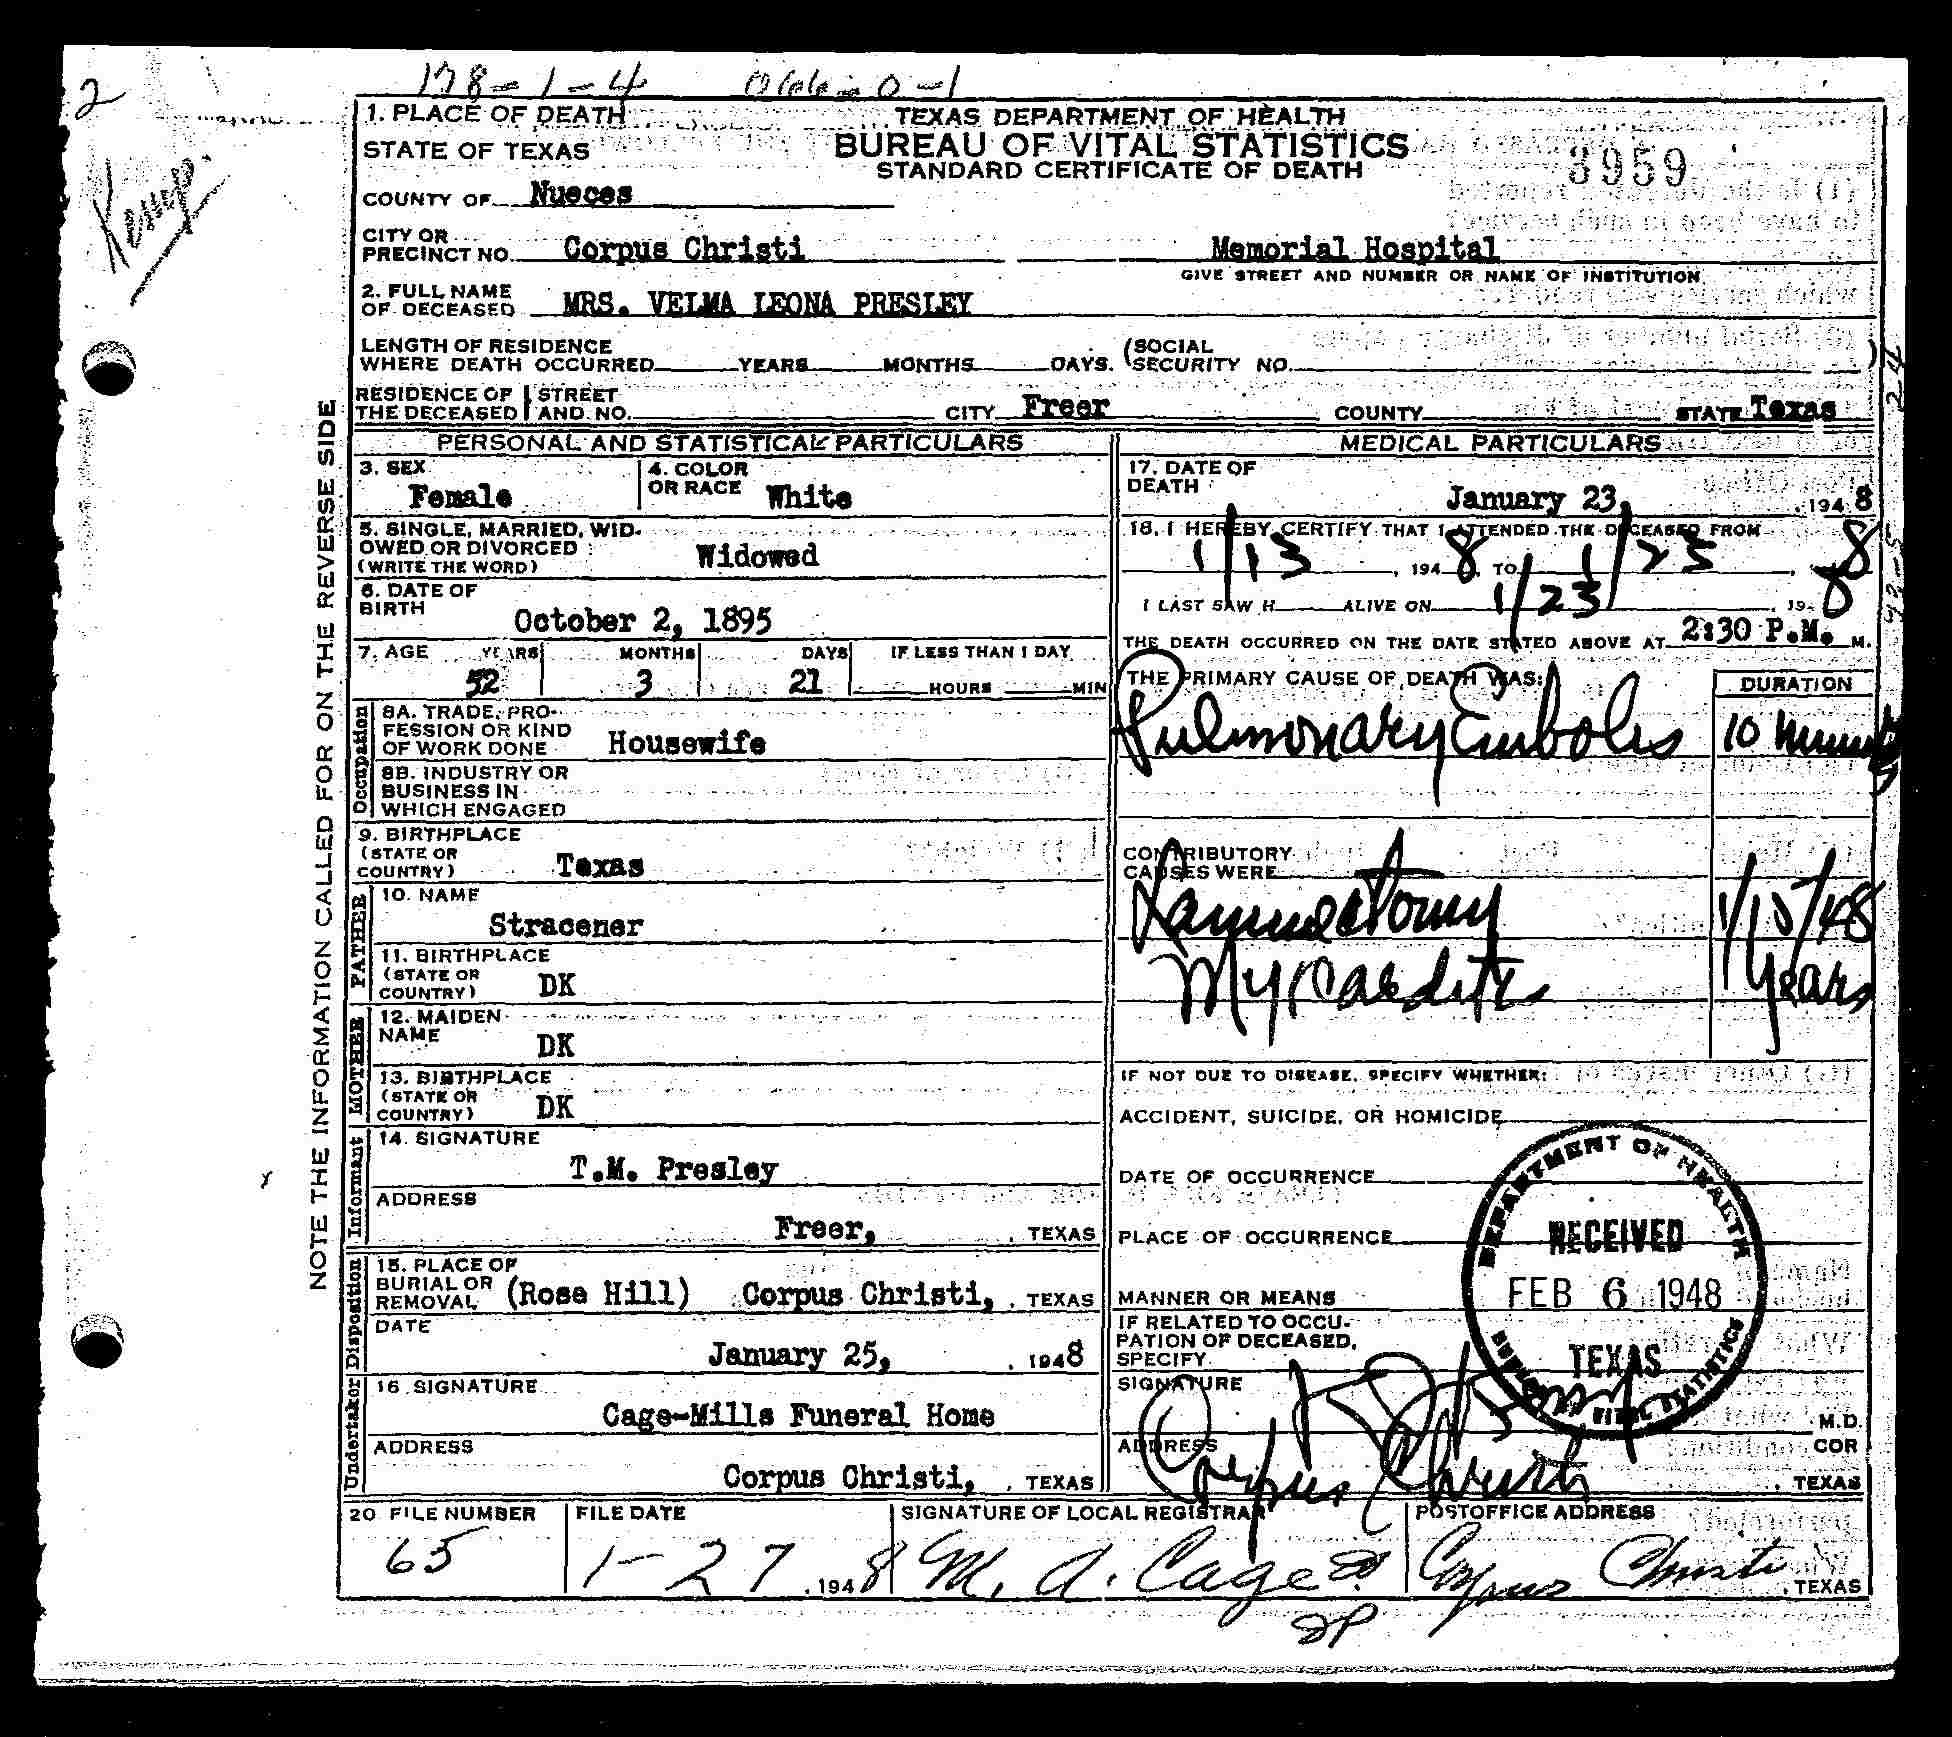 2
178-1-4 066-0-1
Kemp.
1. PLACE OF DEATH
STATE OF TEXAS
TEXAS DEPARTMENT OF HEALTH
BUREAU OF VITAL STATISTICS
STANDARD CERTIFICATE OF DEATH
3959
COUNTY OF Nueces
CITY OR
PRECINCT NO. Corpus Christi Memorial Hospital
GIVE STREET AND NUMBER OR NAME OF INSTITUTION
2. FULL NAME
OF DECEASED MRS. VELMA LEONA PRESLEY
LENGTH OF RESIDENCE
WHERE DEATH OCCURRED YEARS MONTHS DAYS. (SOCIAL
SECURITY NO. )
RESIDENCE OF
THE DECEASED STREET
AND NO. CITY Freer COUNTY STATE Texas
NOTE THE INFORMATION CALLED FOR ON THE REVERSE SIDE
PERSONAL AND STATISTICAL PARTICULARS
3. SEX
Female
4. COLOR
OR RACE White
5. SINGLE, MARRIED, WID-
OWED OR DIVORCED
(WRITE THE WORD) Widowed
6. DATE OF
BIRTH October 2, 1895
7. AGE YEARS MONTHS DAYS IF LESS THAN 1 DAY
52 3 21 HOURS MIN
Occupation
8A. TRADE, PRO-
FESSION OR KIND
OF WORK DONE Housewife
8B. INDUSTRY OR
BUSINESS IN
WHICH ENGAGED
9. BIRTHPLACE
(STATE OR
COUNTRY) Texas
FATHER
10. NAME
Stracener
11. BIRTHPLACE
(STATE OR
COUNTRY) DK
MOTHER
12. MAIDEN
NAME DK
13. BIRTHPLACE
(STATE OR
COUNTRY) DK
Informant
14. SIGNATURE
T.M. Presley
ADDRESS
Freer, , TEXAS
Disposition
15. PLACE OF
BURIAL OR
REMOVAL (Rose Hill) Corpus Christi, , TEXAS
DATE
January 25, , 1948
Undertaker
16. SIGNATURE
Cage-Mills Funeral Home
ADDRESS
Corpus Christi, , TEXAS
MEDICAL PARTICULARS
17. DATE OF
DEATH January 23, , 1948
18. I HEREBY CERTIFY THAT I ATTENDED THE DECEASED FROM
1/13 , 1948, TO 1/23 , 8
I LAST SAW H ALIVE ON 1/23 , 19 8
THE DEATH OCCURRED ON THE DATE STATED ABOVE AT 2:30 P.M. M.
THE PRIMARY CAUSE OF DEATH WAS: DURATION
Pulmonary Embolis 10 minutes
CONTRIBUTORY
CAUSES WERE
Laminectomy 1/15/48
Myocarditis Years
IF NOT DUE TO DISEASE, SPECIFY WHETHER:
ACCIDENT, SUICIDE, OR HOMICIDE
DATE OF OCCURRENCE
PLACE OF OCCURRENCE
MANNER OR MEANS
IF RELATED TO OCCU-
PATION OF DECEASED,
SPECIFY
SIGNATURE
M.D.
ADDRESS Corpus Christi COR
, TEXAS
DEPARTMENT OF HEALTH
RECEIVED
FEB 6 1948
TEXAS
BUREAU OF VITAL STATISTICS
20 FILE NUMBER FILE DATE SIGNATURE OF LOCAL REGISTRAR POSTOFFICE ADDRESS
65 1-27 , 1948 M. A. Cage Corpus Christi , TEXAS